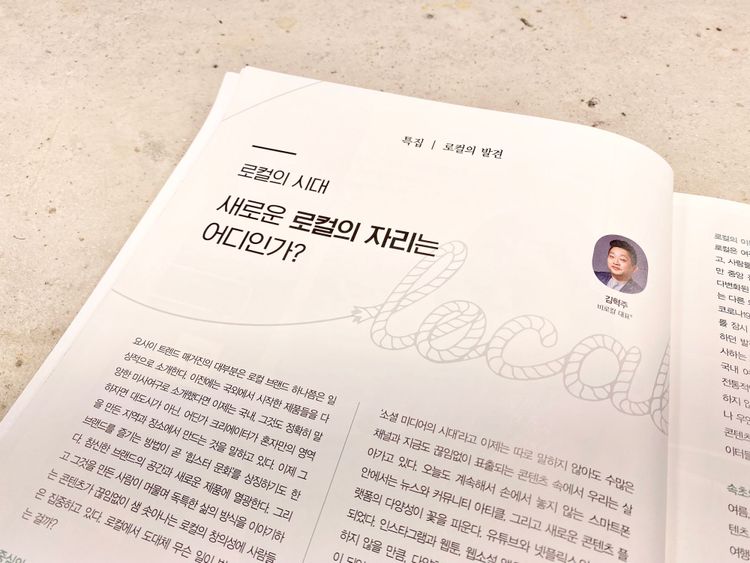 특집 | 로컬의 발견
로컬의 시대
새로운 로컬의 자리는
어디인가?
김혁주
비로컬 대표*
local
요사이 트렌드 매거진의 대부분은 로컬 브랜드 하나쯤은 일
상적으로 소개한다. 이전에는 국외에서 시작한 제품들을 다
양한 미사여구로 소개했다면 이제는 국내, 그것도 정확히 말
하자면 대도시가 아닌, 어딘가 크리에이터가 혼자만의 영역
을 만든 지역과 장소에서 만드는 것을 말하고 있다. 이제 그
브랜드를 즐기는 방법이 곧 '힙스터 문화'를 상징하기도 한
다. 참신한 브랜드의 공간과 새로운 제품에 열광한다. 그리
고 그것을 만든 사람이 머물며 독특한 삶의 방식을 이야기하
는 콘텐츠가 끊임없이 샘 솟아나는 로컬의 창의성에 사람들
은 집중하고 있다. 로컬에서 도대체 무슨 일이
는 걸까?
소셜 미디어의 시대'라고 이제는 따로 말하지 않아도 수많은
채널과 지금도 끊임없이 표출되는 콘텐츠 속에서 우리는 살
아가고 있다. 오늘도 계속해서 손에서 놓지 않는 스마트폰
안에서는 뉴스와 커뮤니티 아티클, 그리고 새로운 콘텐츠 플
랫폼의 다양성이 꽃을 피운다. 유튜브와 넷플릭스
되었다. 인스타그램과 웹툰, 웹소설
하지 않을 만큼, 다양
이 되어
로컬의 이
로컬은 여
고, 사람들
만 중앙
다변화된
는 다른
코로나19
를 잠시
하던 발
사하는
국내 여
전통적
하지 않
나 우연
콘텐츠
이터들
속초
여름,
텐츠
여행